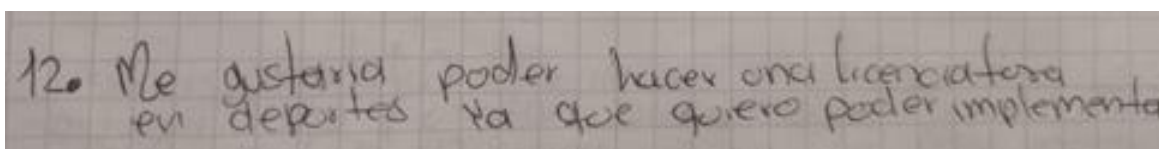 12. Me gustaria poder hacer una licenciatura
en deportes ya que quiero poder implementa